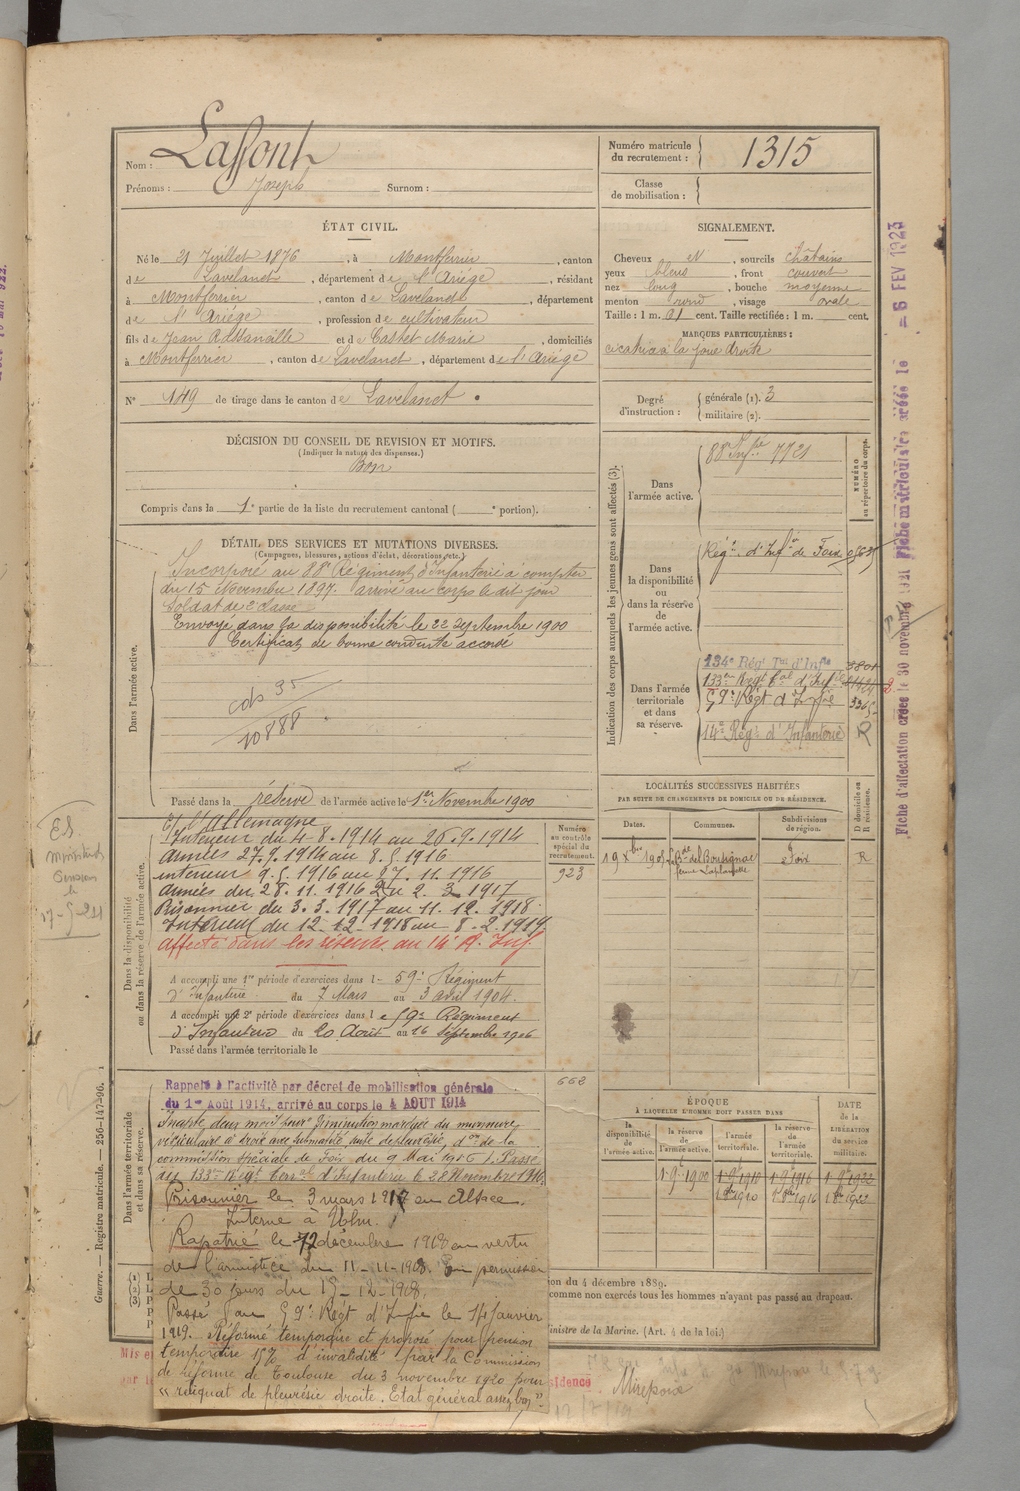 Nom : Laffont
Prénoms : Joseph Surnom :
Numéro matricule du recrutement : 1315
Classe de mobilisation :
ÉTAT CIVIL.
Né le 21 Juillet 1876, à Montferrier, canton
de Lavelanet, département de l'Ariège, résidant
à Montferrier, canton de Lavelanet, département
de l'Ariège, profession de cultivateur
fils de Jean et de Marie, domiciliés
à Montferrier, canton de Lavelanet, département de l'Ariège
N° 149 de tirage dans le canton de Lavelanet.
SIGNALEMENT.
Cheveux N, sourcils châtains
yeux bleus, front couvert
nez long, bouche moyenne
menton rond, visage ovale
Taille : 1 m. 61 cent. Taille rectifiée : 1 m. cent.
MARQUES PARTICULIÈRES :
cicatrice à la joue droite
Degré d'instruction : générale (1). 3
militaire (2).
DÉCISION DU CONSEIL DE REVISION ET MOTIFS.
(Indiquer la nature des dispenses.)
Bon
Compris dans la 1e partie de la liste du recrutement cantonal ( e portion).
DÉTAIL DES SERVICES ET MUTATIONS DIVERSES.
(Campagnes, blessures, actions d'éclat, décorations, etc.)
Dans l'armée active.
Incorporé au 88e Régiment d'Infanterie à compter
du 15 Novembre 1897. arrivé au corps le dit jour
Soldat de 2e classe
Envoyé dans la disponibilité le 22 septembre 1900
Certificat de bonne conduite accordé
10888
Passé dans la réserve de l'armée active le 1er Novembre 1900
Indication des corps auxquels les jeunes gens sont affectés (3).
NUMÉRO au répertoire du corps.
Dans l'armée active.
88e Infrie 7721
Dans la disponibilité ou dans la réserve de l'armée active.
Régt d'Infie de Foix
Dans l'armée territoriale et dans sa réserve.
134e Rég Tal d'Infie
133e Régt Tal d'Infie
59e Régt d'Infie
14e Régt d'Infanterie R
LOCALITÉS SUCCESSIVES HABITÉES
PAR SUITE DE CHANGEMENTS DE DOMICILE OU DE RÉSIDENCE.
Dates. Communes. Subdivisions de région. D domicile ou R résidence.
Foix R
Dans la disponibilité ou dans la réserve de l'armée active.
Numéro au contrôle spécial du recrutement.
923
c/ l'Allemagne
Intérieur du 4-8-1914 au 26.9.1914
armées 27.9.1914 au 8.5.1916
intérieur 9.5.1916 au 27.11.1916
armées du 28.11.1916 au 2.3.1917
Prisonnier du 3.3.1917 au 11.12.1918
Intérieur du 12.12.1918 au 8.2.1919
affecté dans les réserves au 14e R. Inf.
A accompli une 1re période d'exercices dans le 59e Régiment
d'Infanterie du 7 Mars au 3 avril 1904.
A accompli une 2e période d'exercices dans le 59e Régiment
d'Infanterie du 20 Août au 16 Septembre 1906
Passé dans l'armée territoriale le
Dans l'armée territoriale et dans sa réserve.
662
Rappelé à l'activité par décret de mobilisation générale
du 1er Août 1914, arrivé au corps le 4 AOUT 1914
Inapte deux mois pour diminution marquée du murmure
vésiculaire à droite avec submatité suite de pleurésie, don de la
commission spéciale de Foix du 9 Mai 1916. Passé
au 133e Régt Terral d'Infanterie le 28 Novembre 1916.
Prisonnier le 3 mars 1917 en Alsace.
Interné à Ulm.
Rapatrié le 12 décembre 1918 en vertu
de l'armistice du 11-11-1918. En permission
de 30 jours du 15-12-1918.
Passé au 59e Régt d'Infie le 14 Janvier
1919. Réformé temporaire et proposé pour pension
temporaire 15% d'invalidité par la Commission
de réforme de Toulouse du 3 novembre 1920 pour
"reliquat de pleurésie droite. Etat général assez bon"
ÉPOQUE
À LAQUELLE L'HOMME DOIT PASSER DANS
DATE de la LIBÉRATION du service militaire.
la disponibilité de l'armée active. la réserve de l'armée active. l'armée territoriale. la réserve de l'armée territoriale.
1 9bre 1900 1 9bre 1910 1 9bre 1916 1 9bre 1922
1 8bre 1910 1 8bre 1916 1 8bre 1922
ion du 4 décembre 1889.
comme non exercés tous les hommes n'ayant pas passé au drapeau.
Ministre de la Marine. (Art. 4 de la loi.)
Mirepoix
Guerre. — Registre matricule. — 256-147-96.
Fiche d'affectation créée le 30 novembre 1921 Fiche matriculaire créée le - 6 FEV 1923